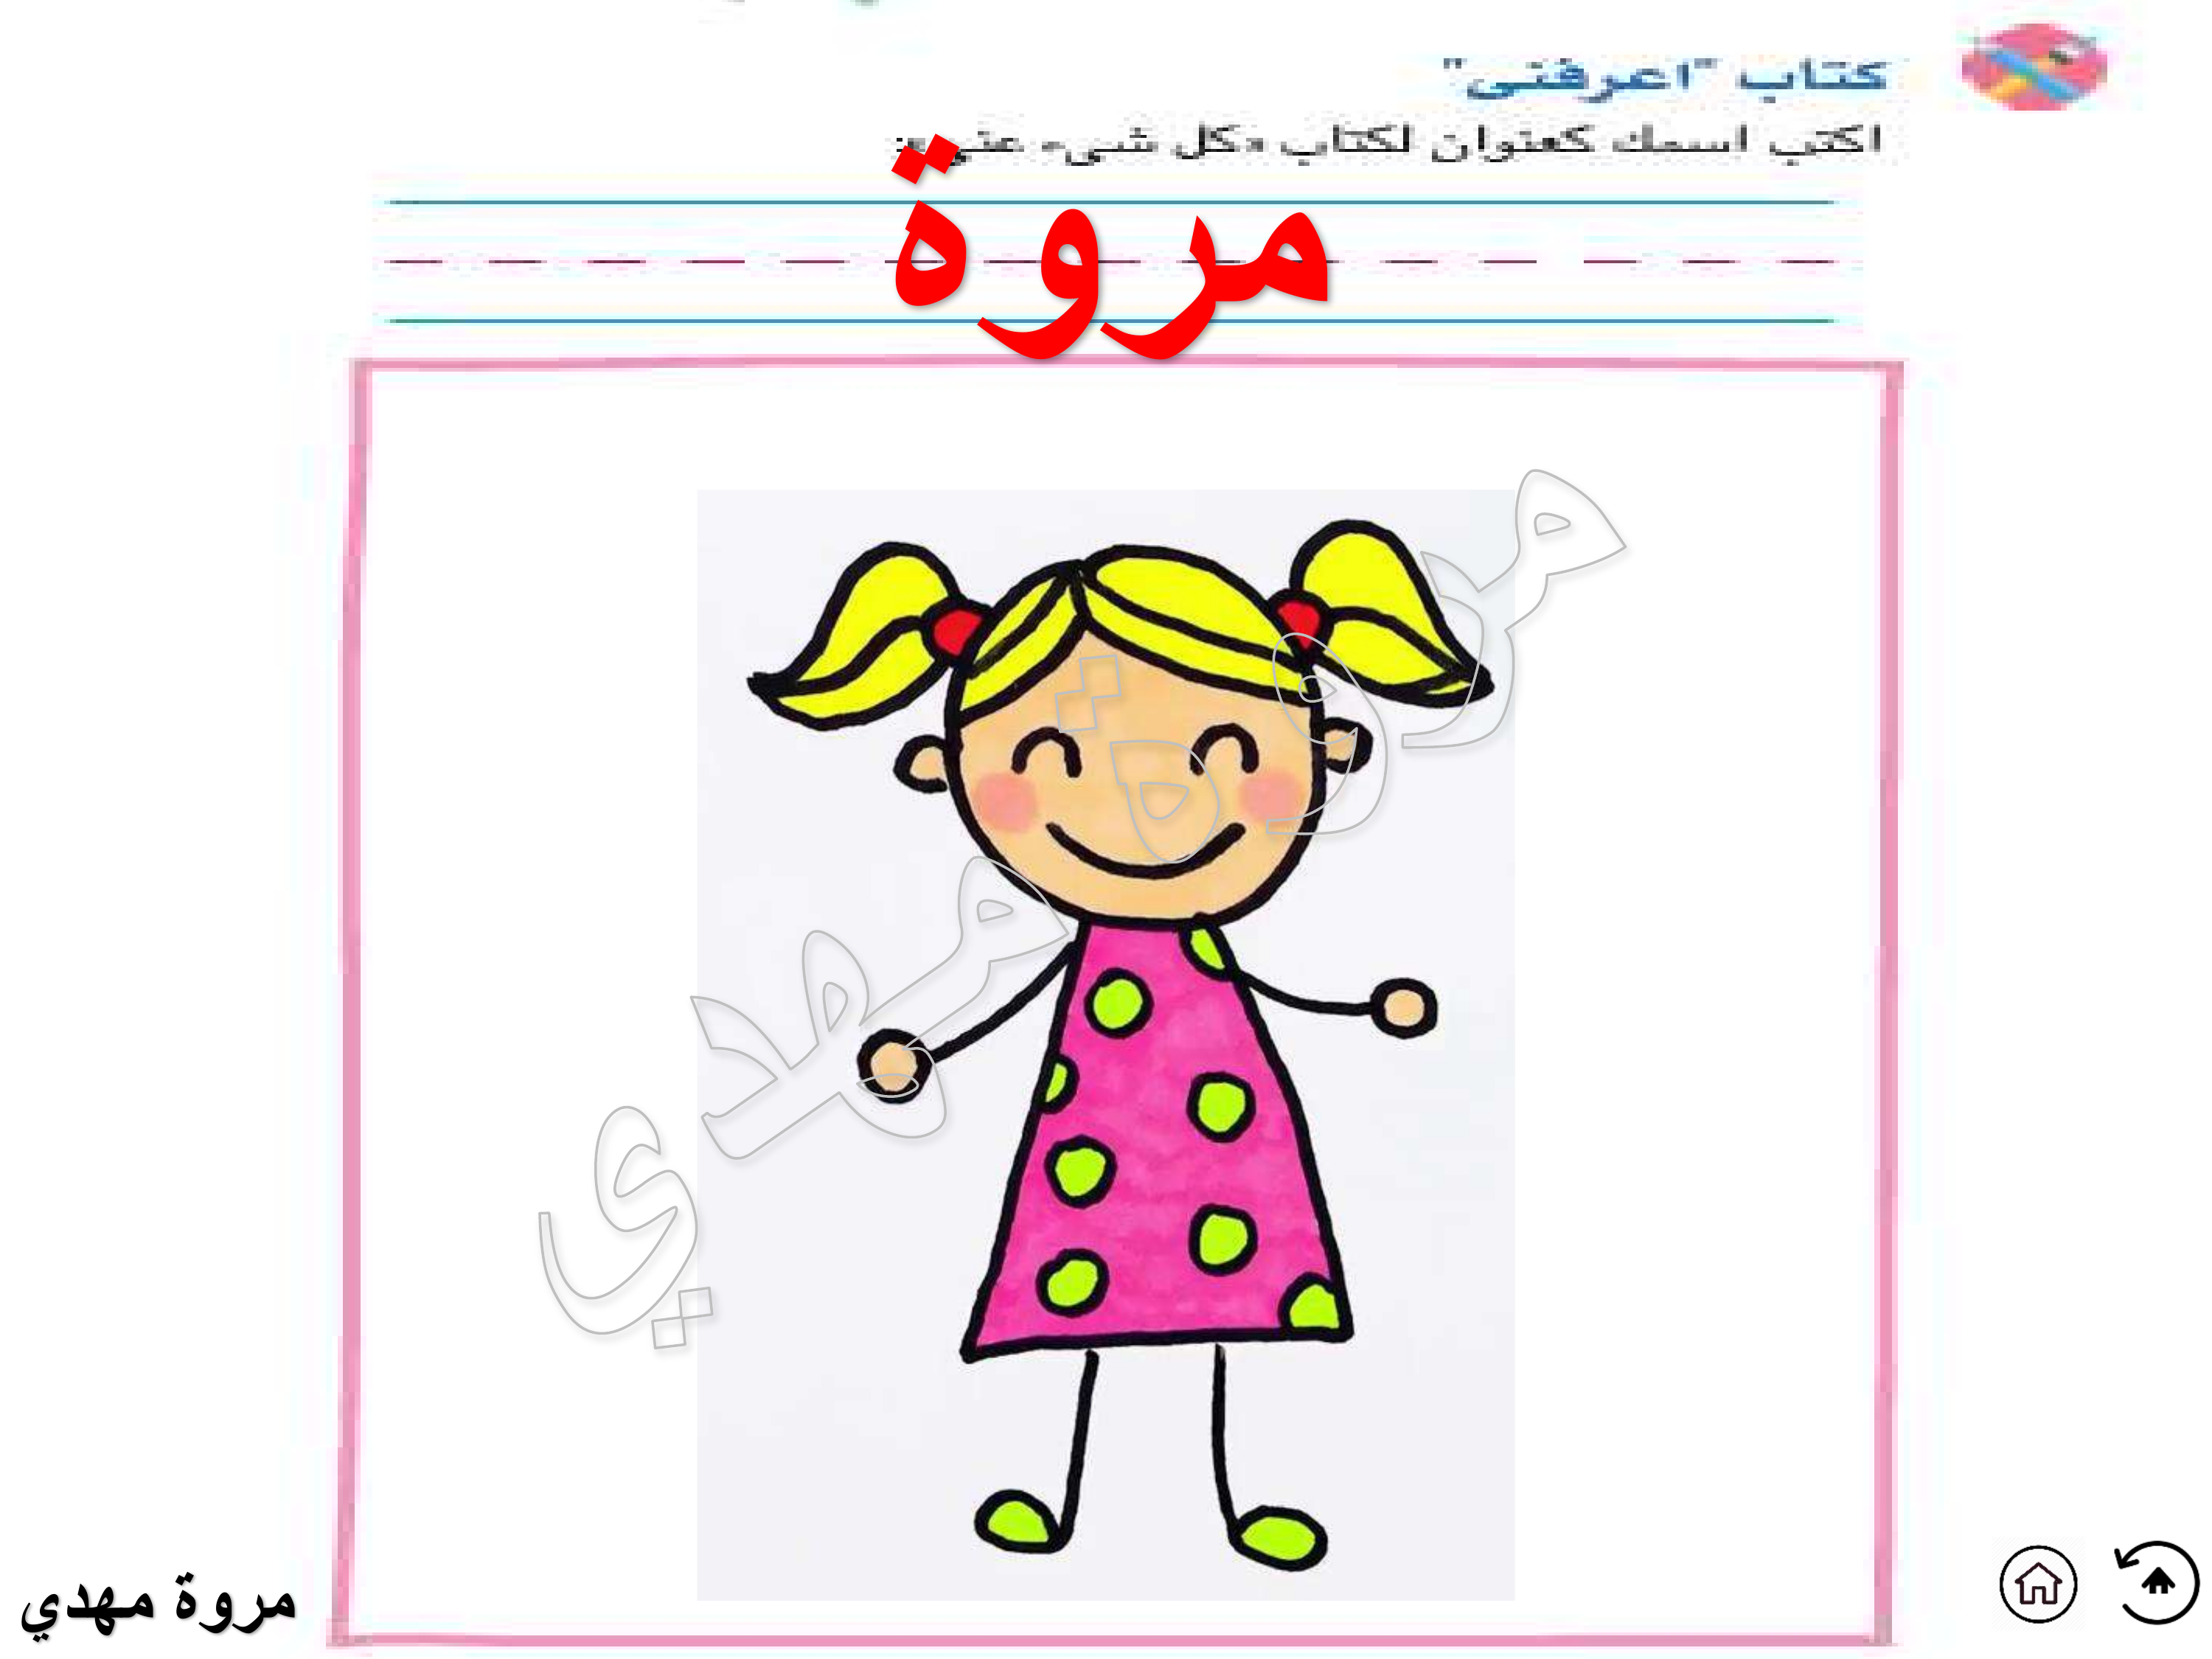 كتاب "اعرفني"
اكتب اسمك كعنوان لكتاب «كل شيء عني»:
مروة
مروة مهدي
مروة مهدي